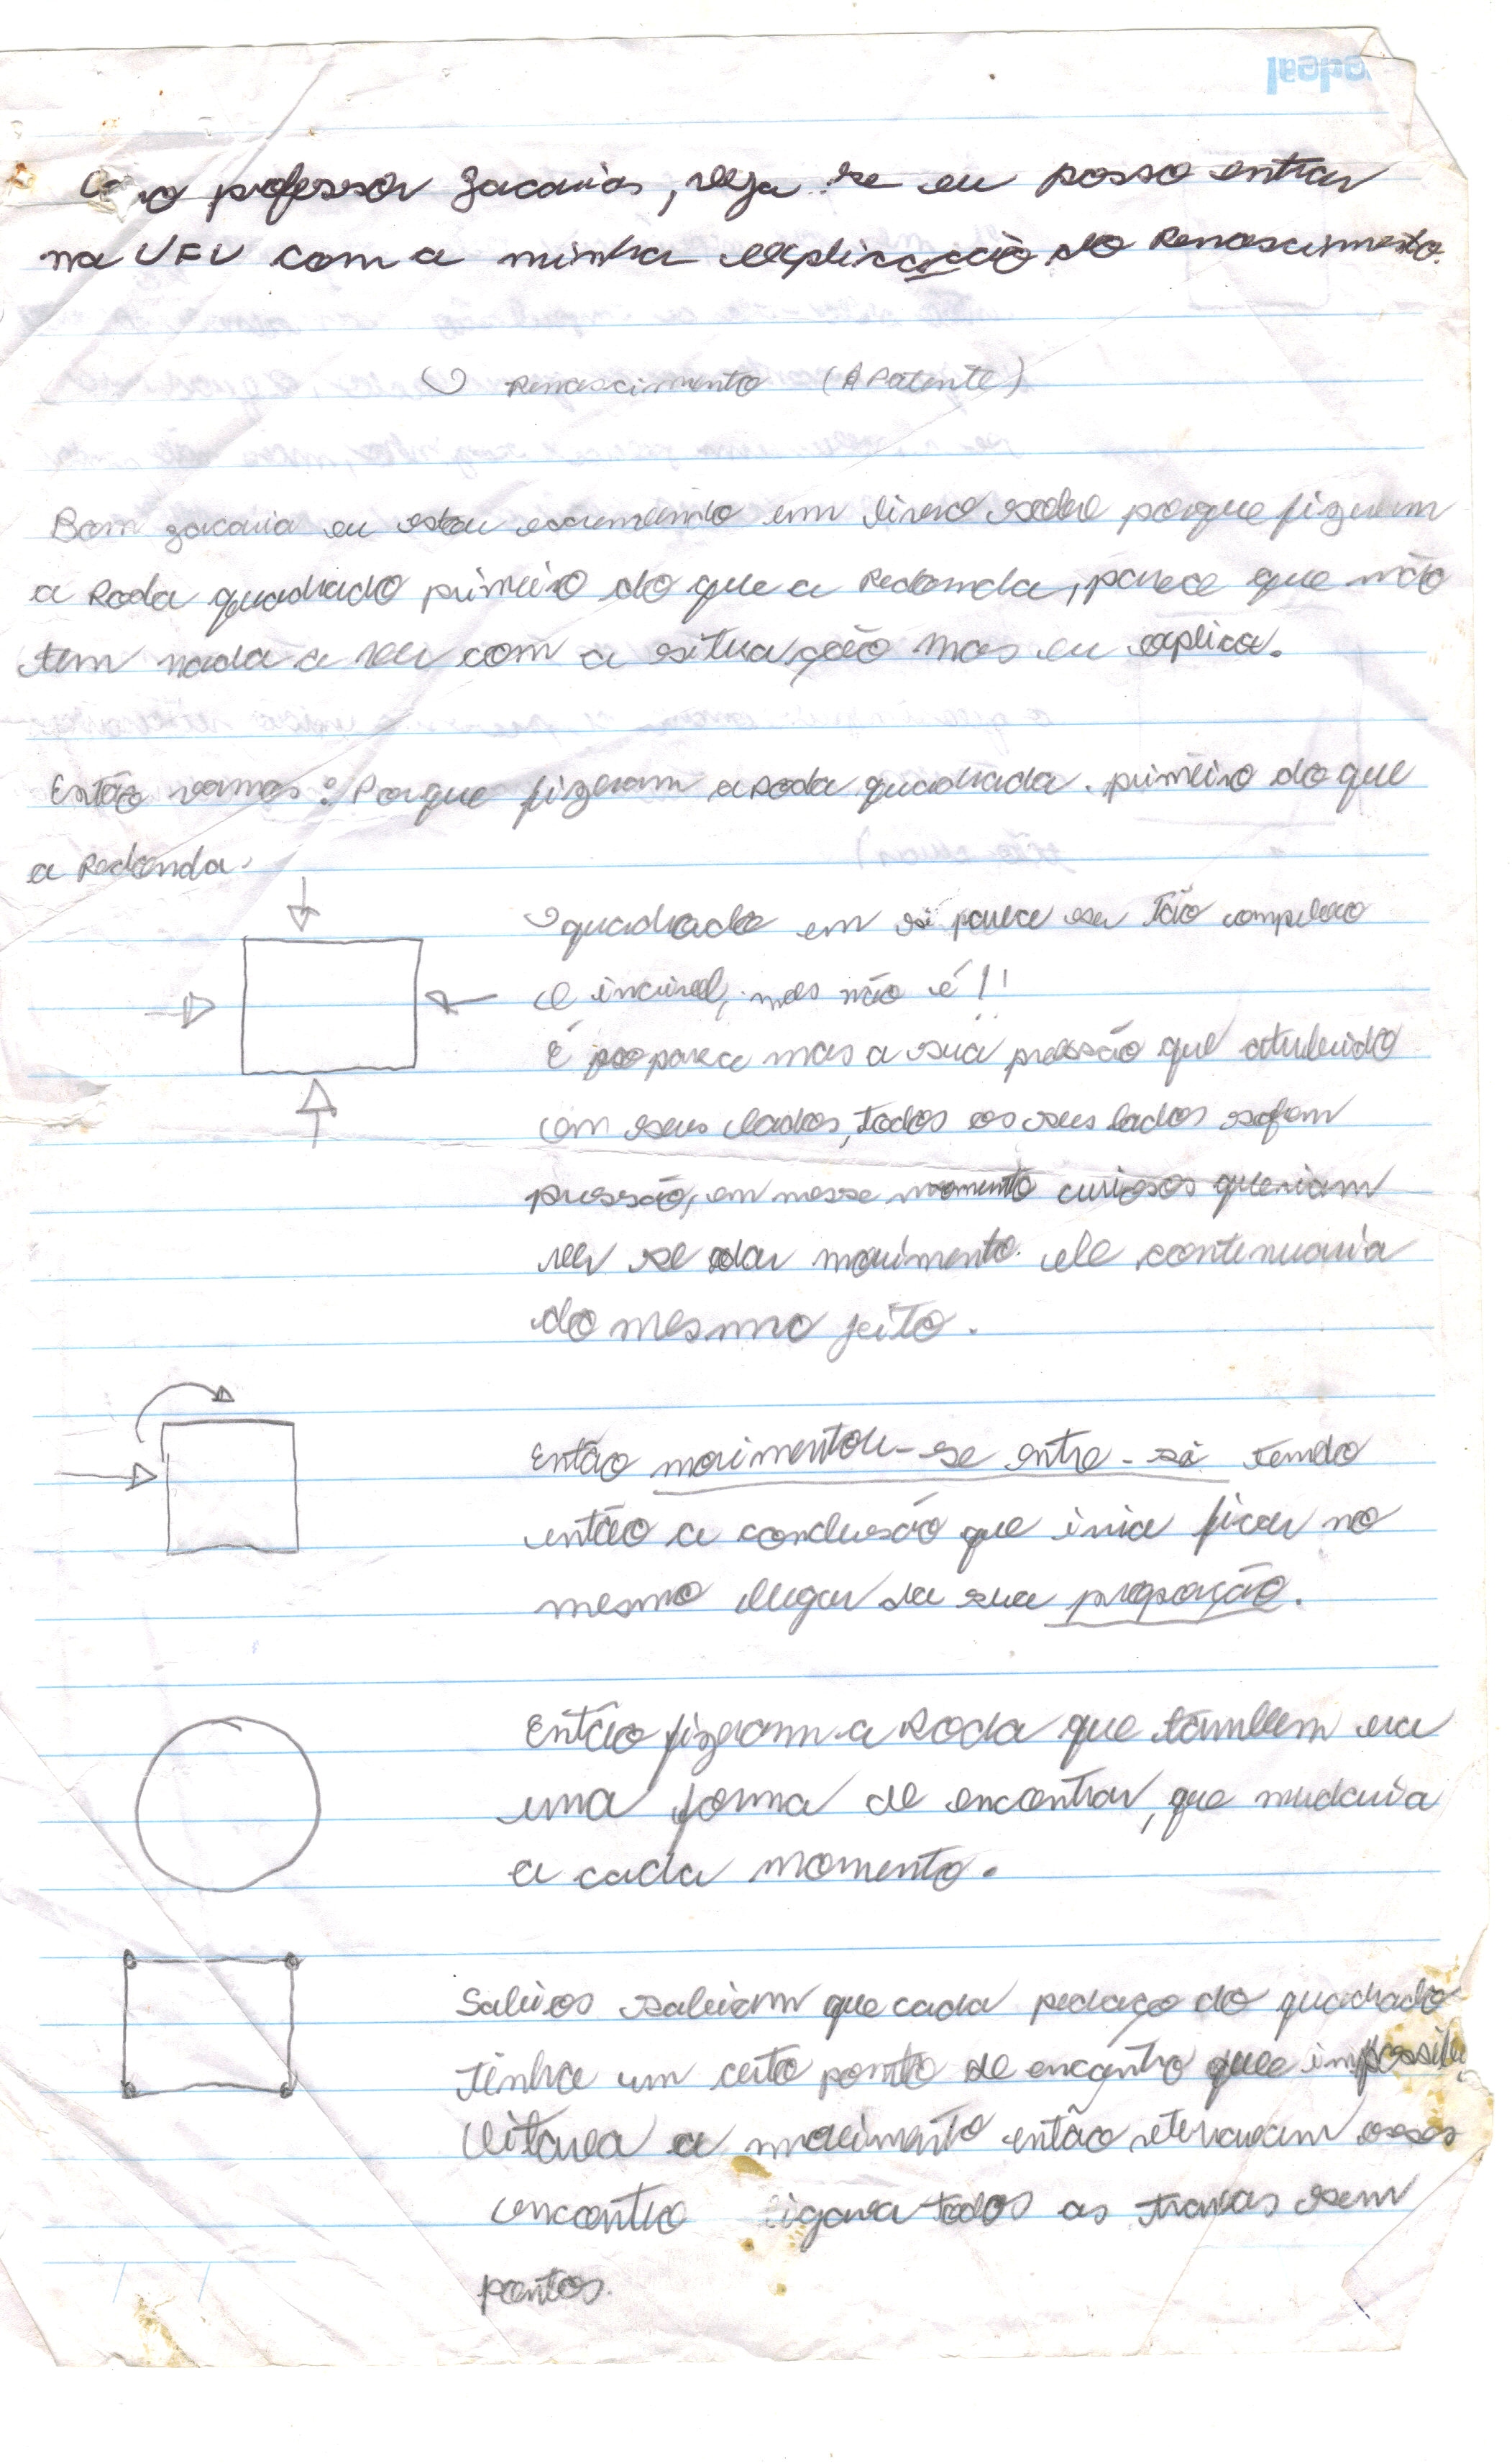 professor Zacarias, veja se eu posso entrar
na UFV com a minha explicação do Renascimento.
O Renascimento (A Patente)
Bom Zacaria eu estou escrevendo um livro sobre porque fizeram
a Roda quadrado primeiro do que a Redonda, parece que não
tem nada a ver com a situação mas eu explico.
Então vamos: Porque fizeram a roda quadrada. primeiro do que
a Redonda.
O quadrado em si parece ser Tão complexo
e incrivel, mas não é!!
É parece mas a sua pressão que atribuido
em seus lados, todos os seus lados sofrem
pressão, em nesse momento curiosos queriam
ver se dar movimento ele continuaria
do mesmo jeito.
Então movimentou-se entre-si tendo
então a conclusão que iria ficar no
mesmo lugar da sua proporção.
Então fizeram a Roda que também era
uma forma de encontrar, que mudaria
a cada momento.
Sabios sabiam que cada pedaço do quadrado
tinha um certo ponto de encontro que impossibi
litava a movimento então retiravam esses
encontro ligava todos as travas sem
pontos.